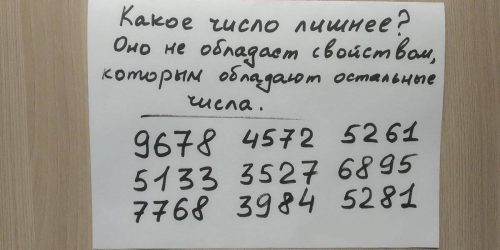 Какое число лишнее?
Оно не обладает свойством,
которым обладают остальные
числа.
9678 4572 5261
5133 3527 6895
7768 3984 5281